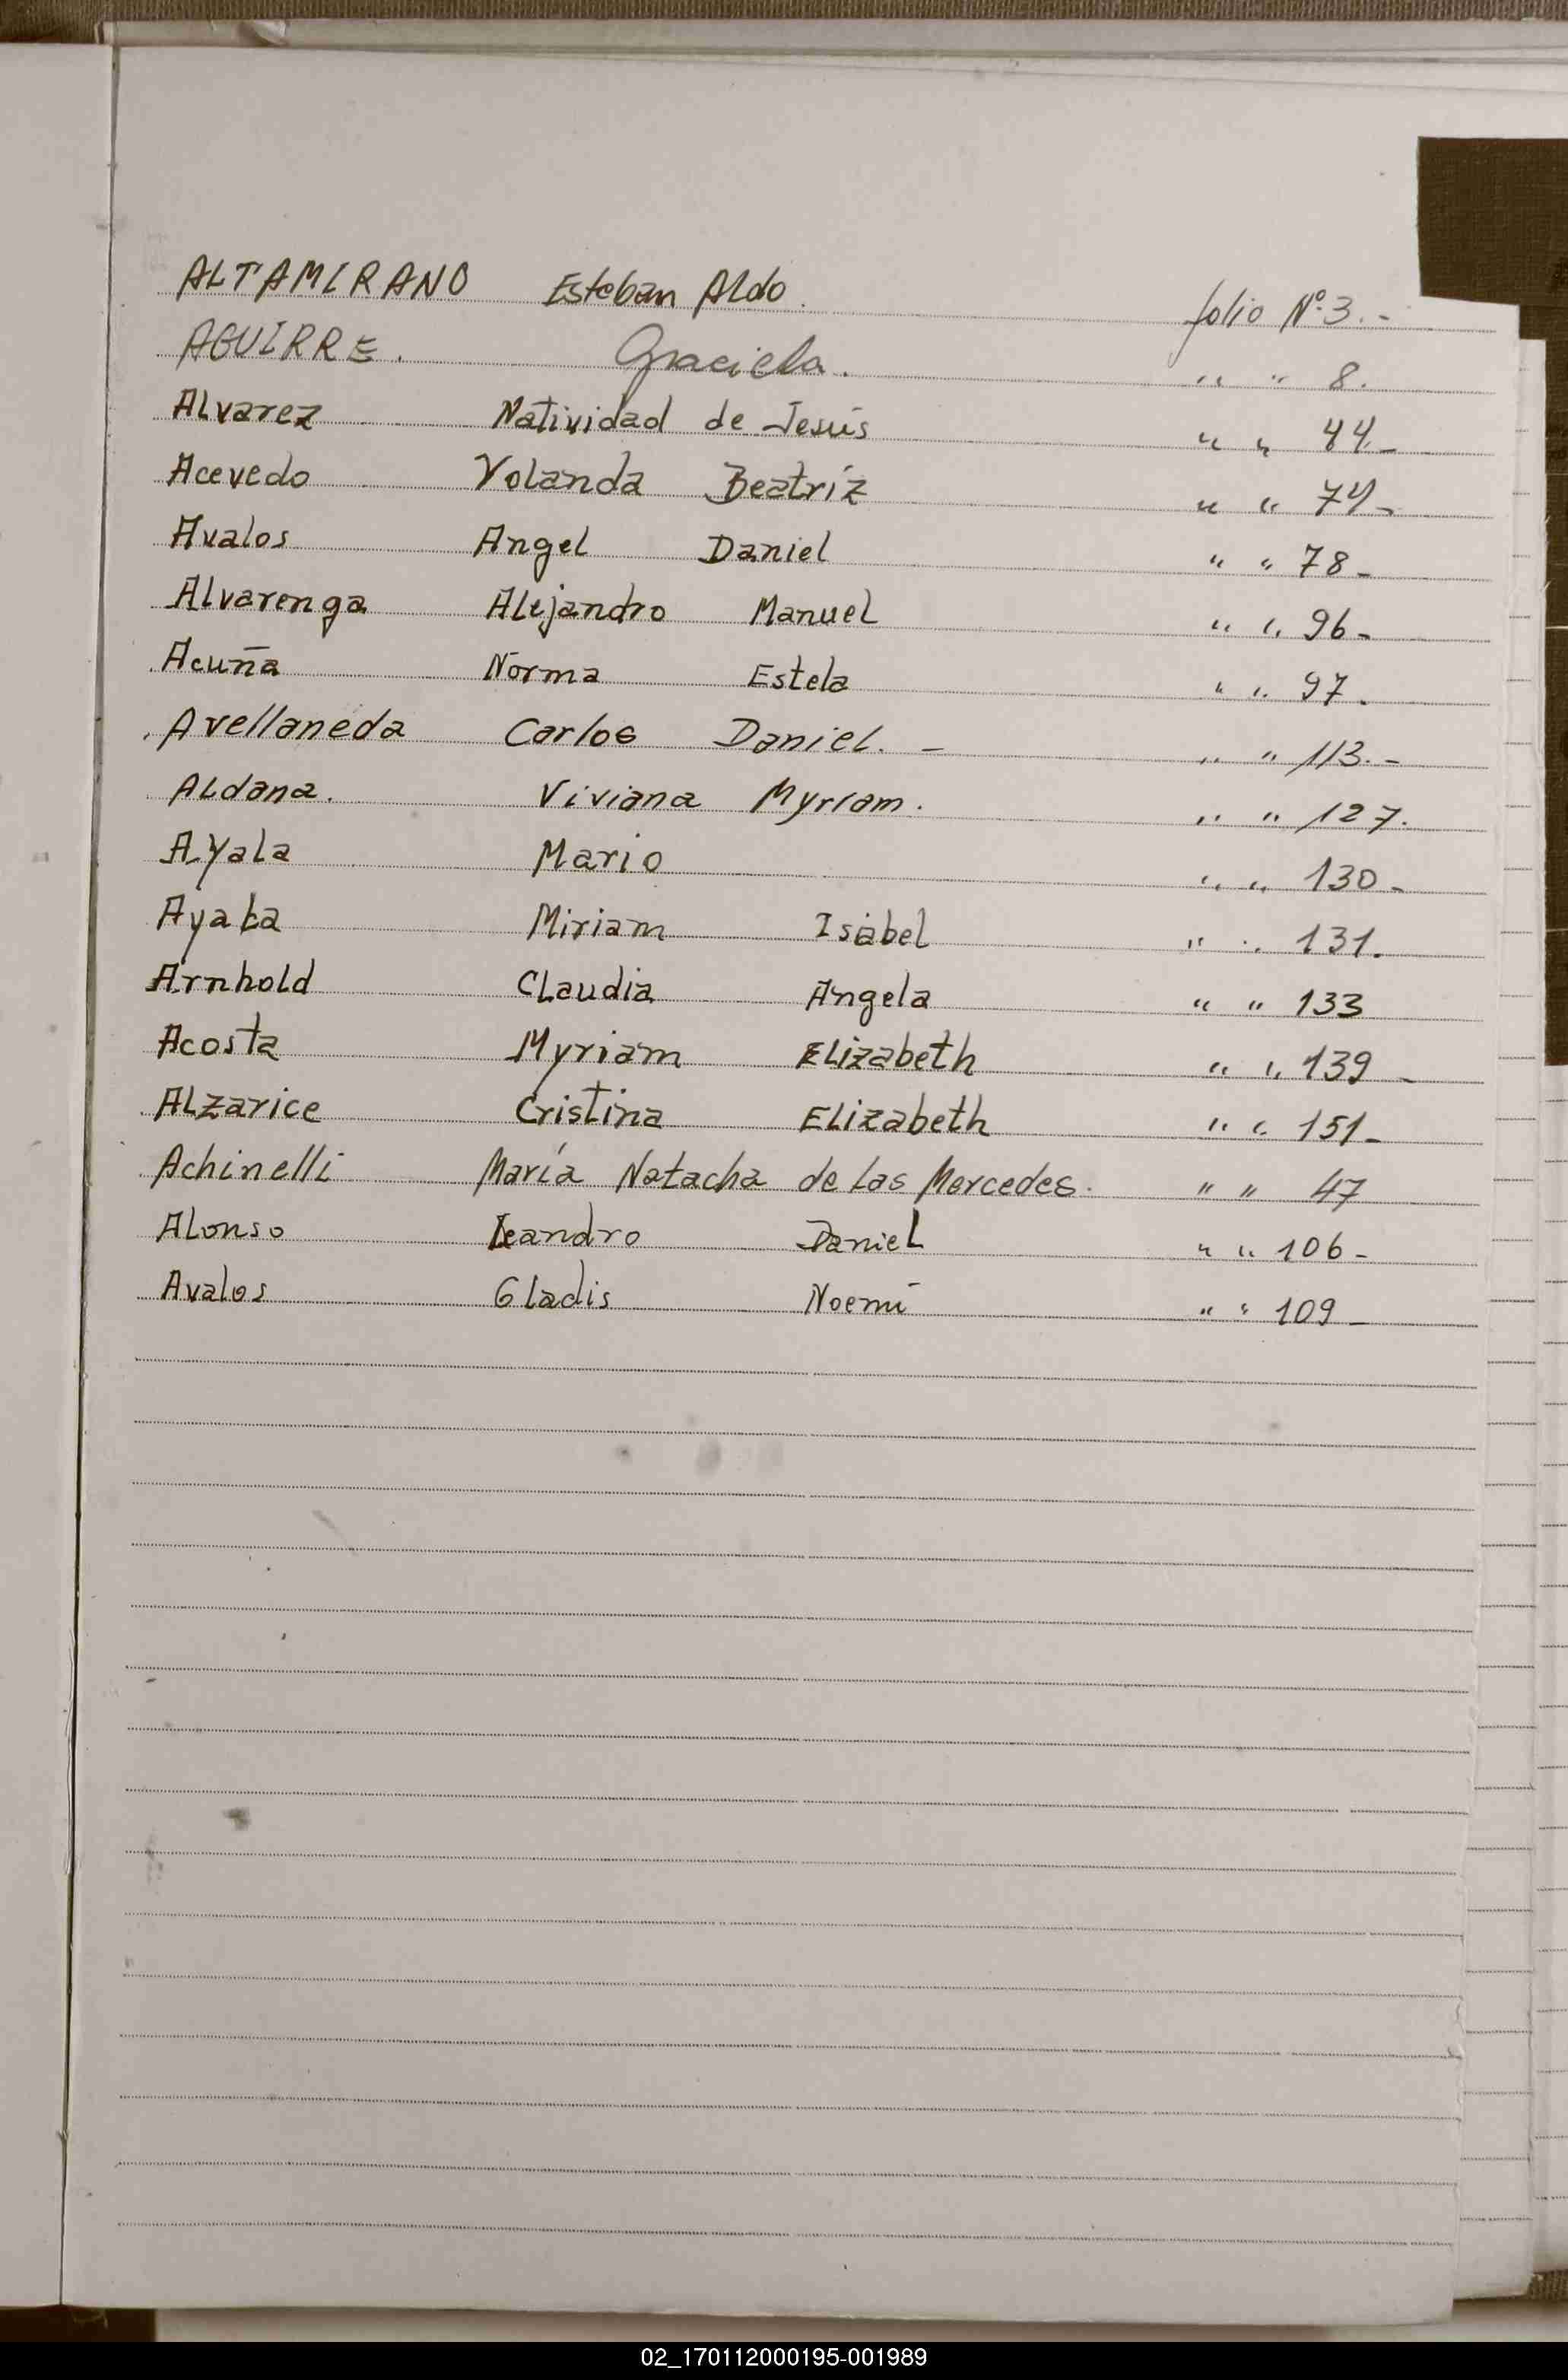 ALTAMIRANO Esteban Aldo. folio Nº 3.-
AGUIRRE. Graciela. " " 8.
Alvarez Natividad de Jesús " " 44-
Acevedo Yolanda Beatríz " " 74-
Avalos Angel Daniel " " 78-
Alvarenga Alejandro Manuel " " 96-
Acuña Norma Estela " " 97.
Avellaneda Carlos Daniel. - " " 113.-
Aldana. Viviana Myriam. " " 127.
Ayala Mario " " 130-
Ayala Miriam Isabel " " 131.
Arnhold Claudia Angela " " 133
Acosta Myriam Elizabeth " " 139-
Alzarice Cristina Elizabeth " " 151-
Achinelli María Natacha de las Mercedes. " " 47
Alonso Leandro Daniel " " 106-
Avalos Gladis Noemí " " 109-
02_170112000195-001989